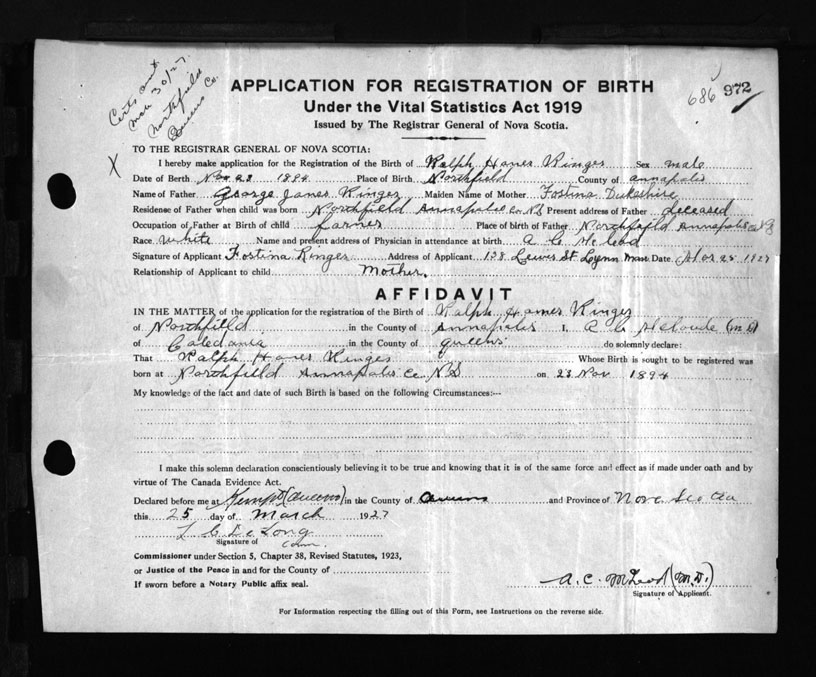 Certs sent
Mar 30/27.
Northfield
Queens Co.
686 972
APPLICATION FOR REGISTRATION OF BIRTH
Under the Vital Statistics Act 1919
Issued by The Registrar General of Nova Scotia.
X
TO THE REGISTRAR GENERAL OF NOVA SCOTIA:
I hereby make application for the Registration of the Birth of Ralph Hanes Ringer Sex male
Date of Birth Nov. 23 1894 Place of Birth Northfield County of annapolis
Name of Father George James Ringer Maiden Name of Mother Fostina Dukeshire
Residense of Father when child was born Northfield Annapolis Co N.S Present address of Father deceased
Occupation of Father at Birth of child farmer Place of birth of Father Northfield Annapolis Co NS
Race White Name and present address of Physician in attendance at birth A C McLeod
Signature of Applicant Fostina Ringer Address of Applicant 138 Lewis St Lynn Mass Date Mar 1927
Relationship of Applicant to child Mother.
AFFIDAVIT
IN THE MATTER of the application for the registration of the Birth of Ralph Hames Ringer
of Northfield in the County of Annapolis I, A C (MD)
of Caledonia in the County of queens do solemnly declare:
That Ralph Hanes Ringer Whose Birth is sought to be registered was
born at Northfield Annapolis Co. N.S on 23 Nov 1894
My knowledge of the fact and date of such Birth is based on the following Circumstances:—
I make this solemn declaration conscientiously believing it to be true and knowing that it is of the same force and effect as if made under oath and by
virtue of The Canada Evidence Act.
Declared before me at Kempt (Queens) in the County of Queens and Province of Nova Scotia
this 25 day of March 1927
L C DeLong
Signature of
Com.
Commissioner under Section 5, Chapter 38, Revised Statutes, 1923,
or Justice of the Peace in and for the County of
If sworn before a Notary Public affix seal.
A. C. McLeod (M.D.)
Signature of Applicant.
For Information respecting the filling out of this Form, see Instructions on the reverse side.